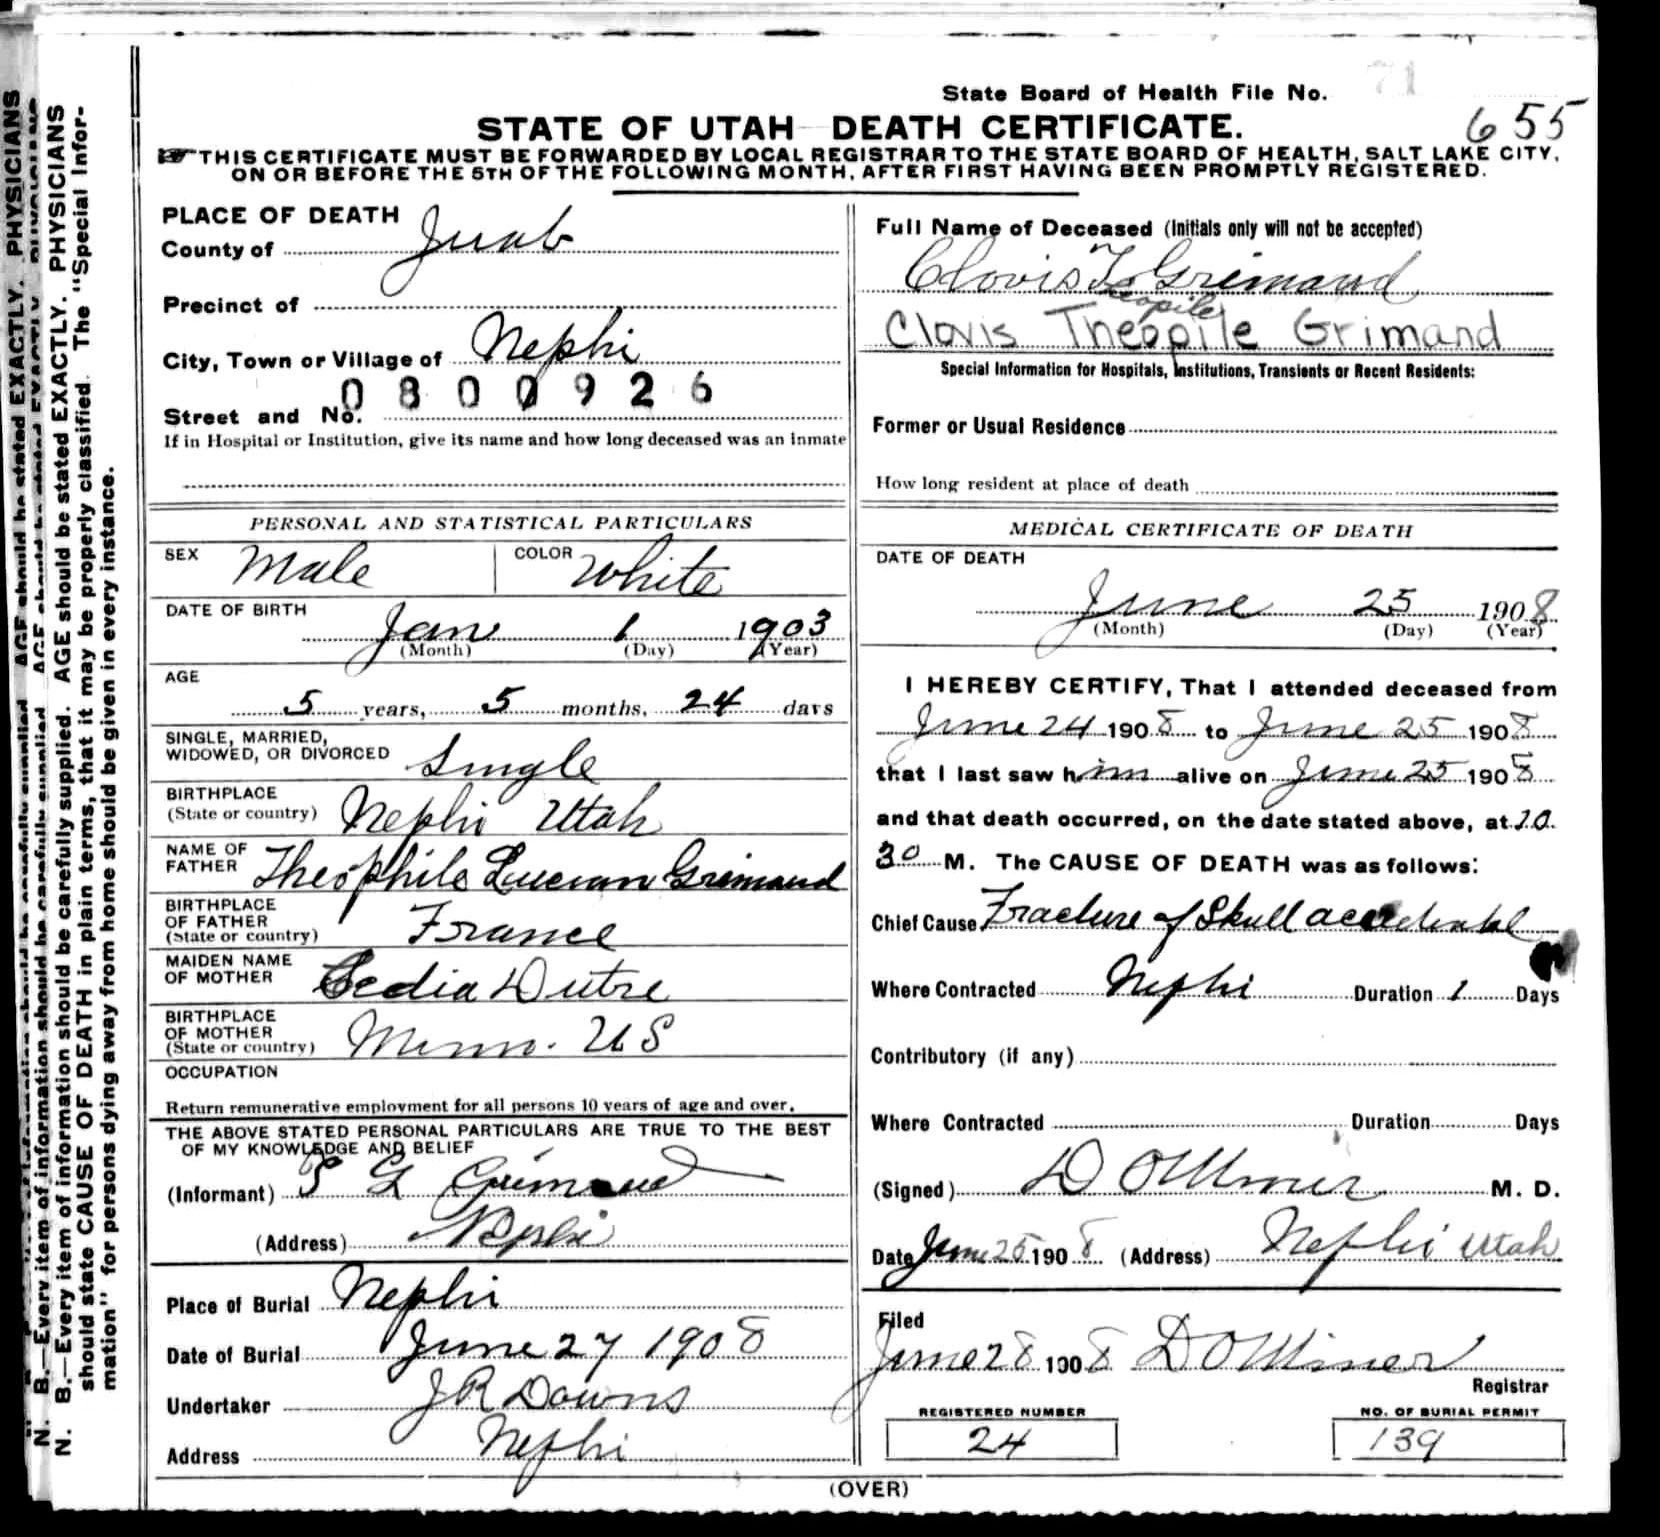 State Board of Health File No. 71
655
STATE OF UTAH DEATH CERTIFICATE.
THIS CERTIFICATE MUST BE FORWARDED BY LOCAL REGISTRAR TO THE STATE BOARD OF HEALTH, SALT LAKE CITY,
ON OR BEFORE THE 5TH OF THE FOLLOWING MONTH, AFTER FIRST HAVING BEEN PROMPTLY REGISTERED.
N. B.—Every item of information should be carefully supplied. AGE should be stated EXACTLY. PHYSICIANS
should state CAUSE OF DEATH in plain terms, that it may be properly classified. The "Special Infor-
mation" for persons dying away from home should be given in every instance.
PLACE OF DEATH
County of Juab
Precinct of
City, Town or Village of Nephi
0800926
Street and No.
If in Hospital or Institution, give its name and how long deceased was an inmate
PERSONAL AND STATISTICAL PARTICULARS
SEX Male COLOR White
DATE OF BIRTH
Jan 1 1903
(Month) (Day) (Year)
AGE
5 years, 5 months, 24 days
SINGLE, MARRIED,
WIDOWED, OR DIVORCED Single
BIRTHPLACE
(State or country) Nephi Utah
NAME OF
FATHER Theophile Lucian Grimaud
BIRTHPLACE
OF FATHER
(State or country) France
MAIDEN NAME
OF MOTHER Dutre
BIRTHPLACE
OF MOTHER
(State or country) Minn. US
OCCUPATION
Return remunerative employment for all persons 10 years of age and over.
THE ABOVE STATED PERSONAL PARTICULARS ARE TRUE TO THE BEST
OF MY KNOWLEDGE AND BELIEF
(Informant) Grimaud
(Address) Nephi
Place of Burial Nephi
Date of Burial June 27 1908
Undertaker J R Downs
Address Nephi
Full Name of Deceased (Initials only will not be accepted)
Clovis T Grimaud
Clovis Theopile Grimand
Special Information for Hospitals, Institutions, Transients or Recent Residents:
Former or Usual Residence
How long resident at place of death
MEDICAL CERTIFICATE OF DEATH
DATE OF DEATH
June 25 1908
(Month) (Day) (Year)
I HEREBY CERTIFY, That I attended deceased from
June 24 1908 to June 25 1908
that I last saw him alive on June 25 1908
and that death occurred, on the date stated above, at 10.
30 M. The CAUSE OF DEATH was as follows:
Chief Cause Fracture of Skull accidental
Where Contracted Nephi Duration 1 Days
Contributory (if any)
Where Contracted Duration Days
(Signed) D O Miner M. D.
Date June 25 1908 (Address) Nephi Utah
Filed
June 28 1908 D O Miner
Registrar
REGISTERED NUMBER
24
NO. OF BURIAL PERMIT
139
(OVER)